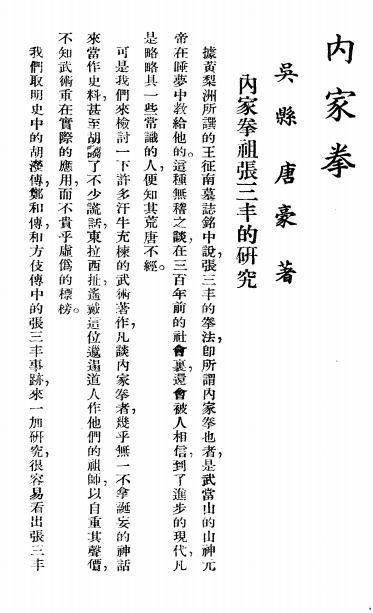 內家拳
吳縣唐豪著
內家拳祖張三丰的研究
據黃梨洲所譔的王征南墓誌銘中說，張三丰的拳法，卽所謂內家拳也者，是武當山的山神元
帝在睡夢中敎給他的。這種無稽之談，在三百年前的社會裏，還會被人相信，到了進步的現代，凡
是略略具一些常識的人，便知其荒唐不經。
可是我們來檢討一下許多汗牛充棟的武術著作，凡談內家拳者，幾乎無一不拿誕妄的神話
來當作史料，甚至胡謅了不少謊話，東拉西扯，遙戴這位邋遢道人作他們的祖師，以自重其聲價，
不知武術重在實際的應用，而不貴乎虛僞的標榜。
我們取明史中的胡濙傳，鄭和傳，和方伎傳中的張三丰事跡，來一加研究，很容易看出張三丰